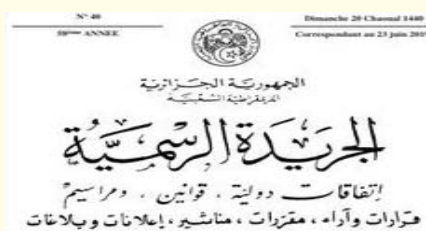 N° 40
Dimanche 20 Chaoual 1440
58ème ANNEE
Correspondant au 23 juin 201
الجمهورية الجزائرية
الديمقراطية الشعبية
الجريدة الرسمية
إتفاقات دولية ، قوانين ، ومراسيم
قرارات وآراء ، مقررات ، مناشير ، إعلانات وبلاغات